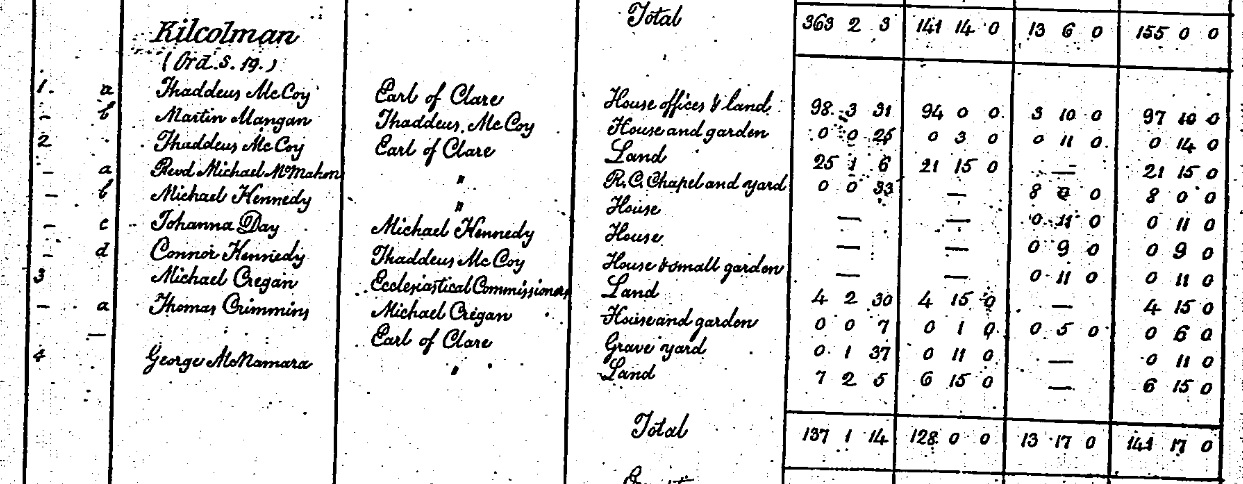 Total 363 2 3 141 14 0 13 6 0 155 0 0
Kilcolman
(Ord. S. 19.)
1. a Thaddeus McCoy Earl of Clare House offices & land 98 3 31 94 0 0 3 10 0 97 10 0
— b Martin Mangan Thaddeus McCoy House and garden 0 0 25 0 3 0 0 11 0 0 14 0
2 Thaddeus McCoy Earl of Clare Land 25 1 6 21 15 0 — 21 15 0
— a Revd Michael McMahon " R.C. Chapel and yard 0 0 33 — 8 0 0 8 0 0
— b Michael Kennedy " House — — 0 11 0 0 11 0
— c Johanna Day Michael Kennedy House — — 0 9 0 0 9 0
— d Connor Kennedy Thaddeus McCoy House & small garden — — 0 11 0 0 11 0
3 Michael Cregan Ecclesiastical Commissioners Land 4 2 30 4 15 0 — 4 15 0
— a Thomas Crimmins Michael Cregan House and garden 0 0 7 0 1 0 0 5 0 0 6 0
— Earl of Clare Grave yard 0 1 37 0 11 0 — 0 11 0
4 George McNamara " Land 7 2 5 6 15 0 — 6 15 0
Total 137 1 14 128 0 0 13 17 0 141 17 0